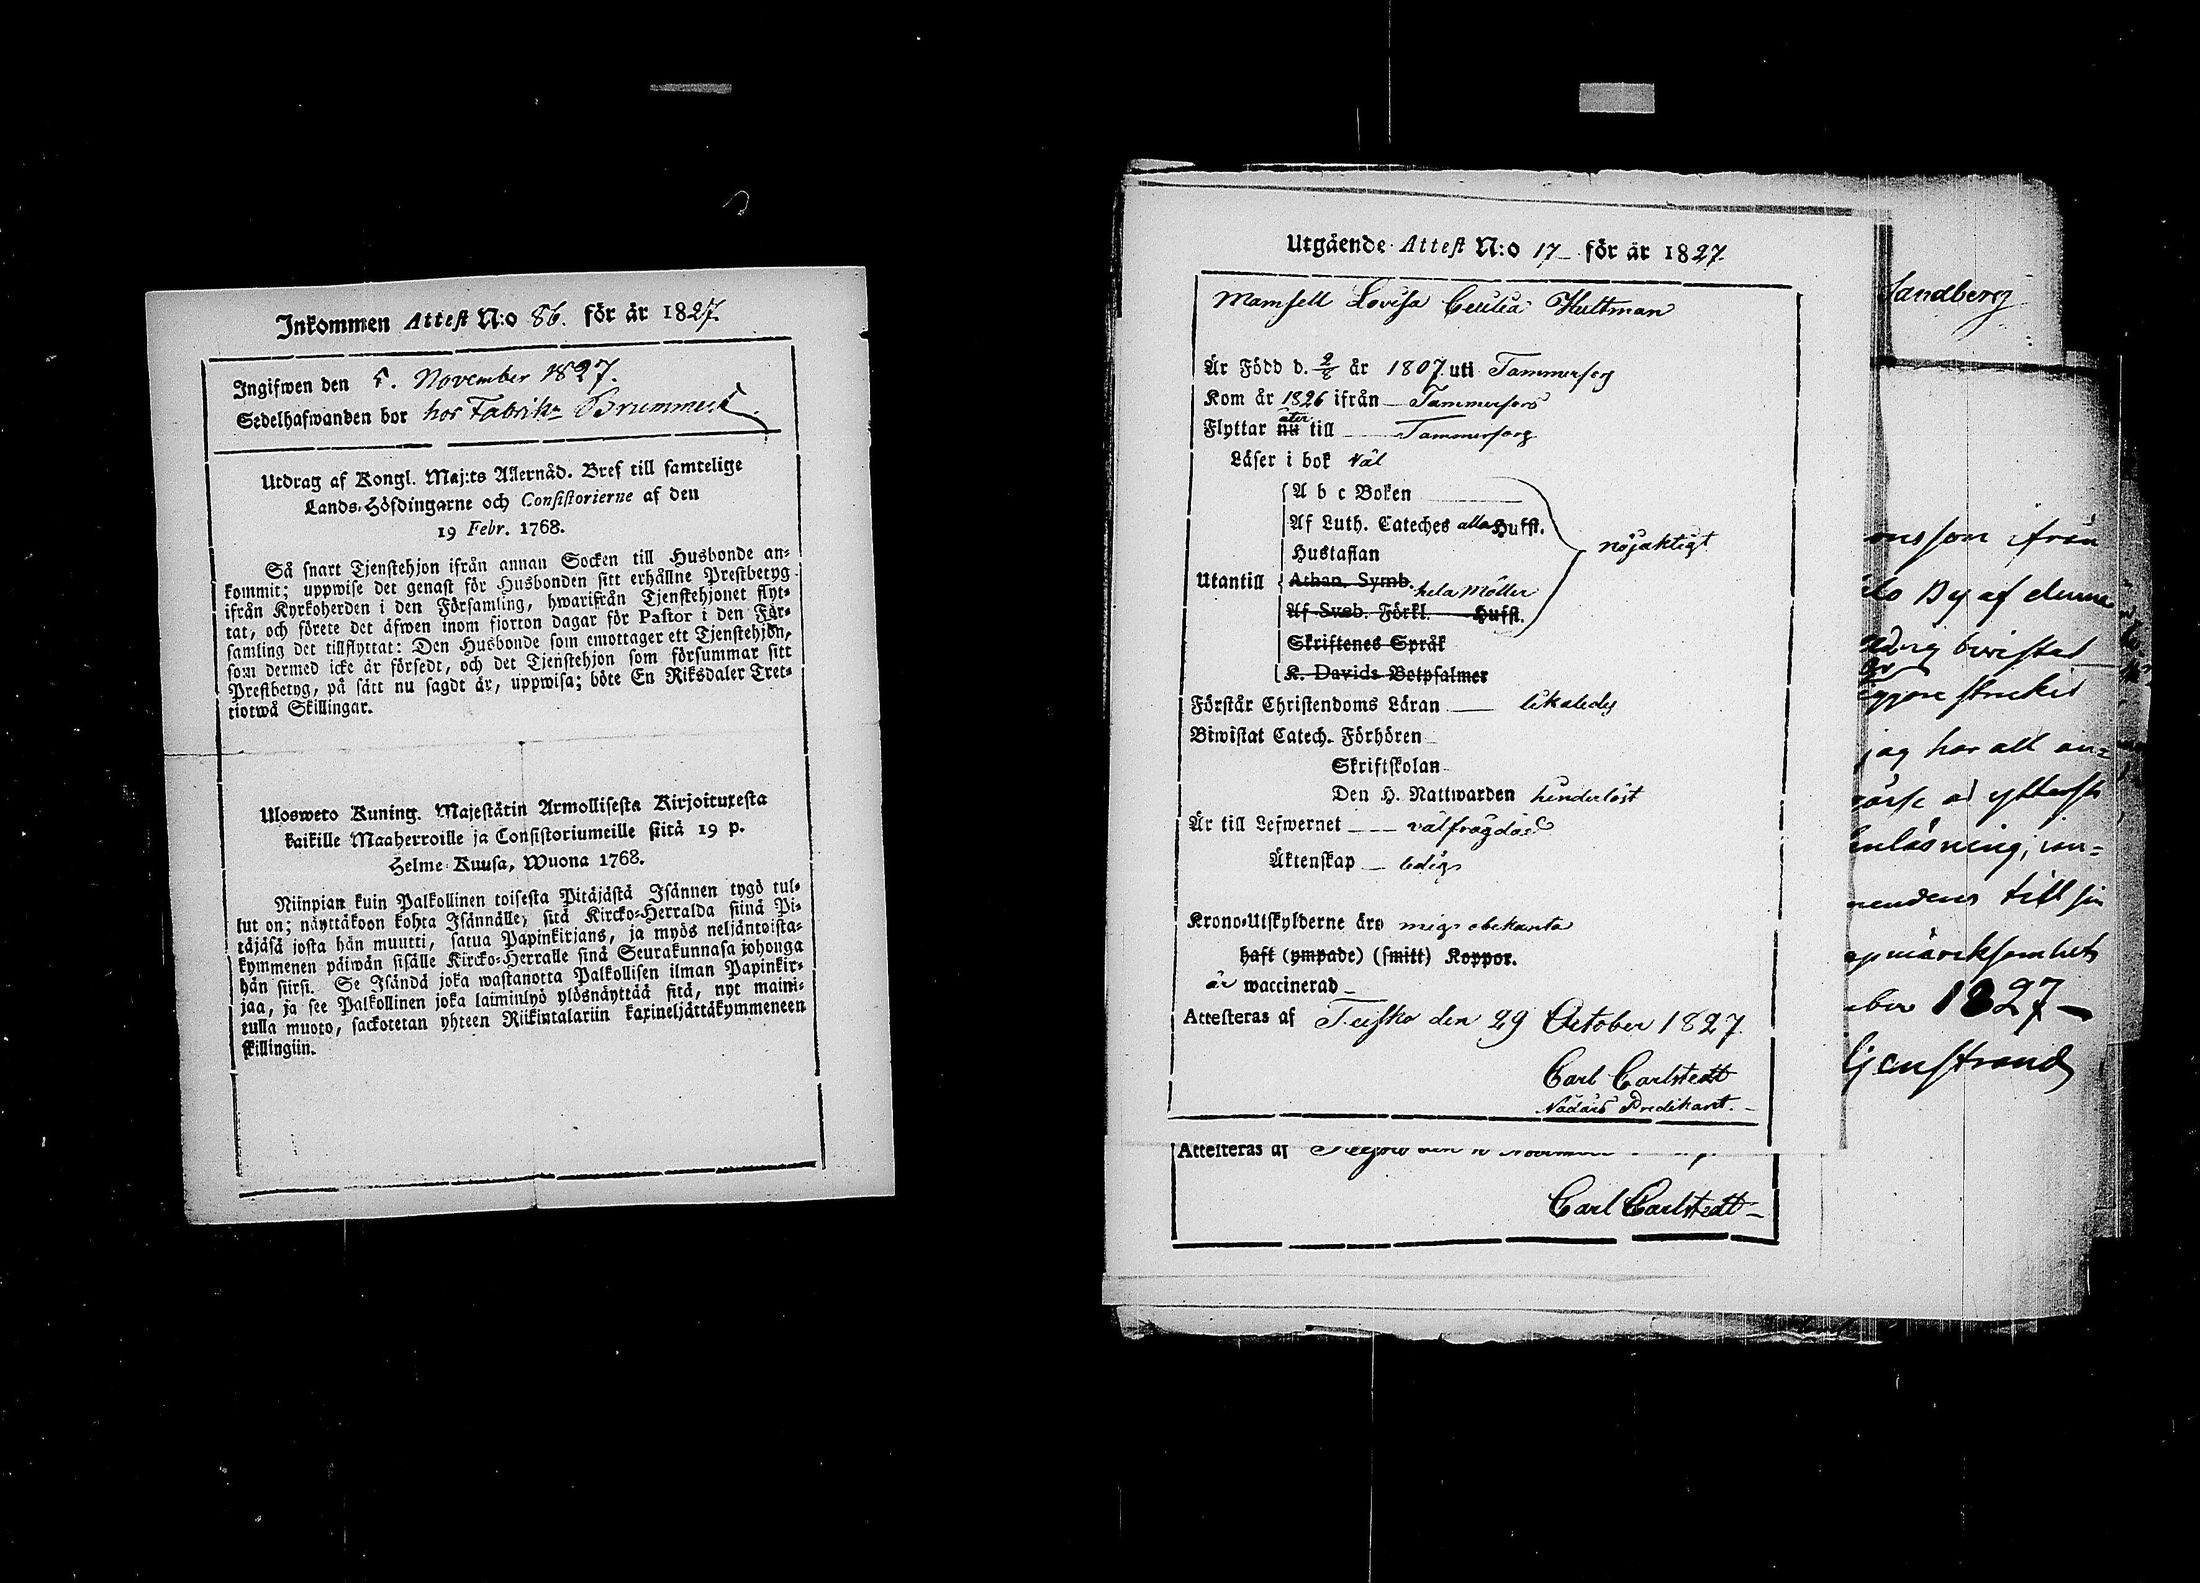 Inkommen Attest N:o 86. för år 1827.
Ingifwen den 5. November 1827.
Sedelhafwanden bor hos Fabrik: Brummert
Utdrag af Kongl. Maj:ts Allernåd. Bref till samtelige
Lands-Höfdingarne och Consistorierne af den
19 Febr. 1768.
Så snart Tjenstehjon ifrån annan Socken till Husbonde an-
kommit; uppwise det genast för Husbonden sitt erhållne Prestbetyg
ifrån Kyrkoherden i den Församling, hwarifrån Tjenstehjonet flyt-
tat, och förete det äfwen inom fjorton dagar för Pastor i den För-
samling det tillflyttat: Den Husbonde som emottager ett Tjenstehjon,
som dermed icke är försedt, och det Tjenstehjon som försummar sitt
Prestbetyg, på sätt nu sagdt är, uppwisa; böte En Riksdaler Tret-
tiotwå Skillingar.
Ulosweto Kuning. Majestätin Armollisesta Kirjoituxesta
kaikille Maaherroille ja Consistoriumeille siitä 19 p.
Helme-Kuusa, Wuona 1768.
Niinpian kuin Palkollinen toisesta Pitäjästä Isännen tygö tul-
lut on; näyttäkoon kohta Isännälle, sitä Kircko-Herralda siinä Pi-
täjäsä josta hän muutti, satua Papinkirjans, ja myös neljäntoista-
kymmenen päiwän sisälle Kircko-Herralle sinä Seurakunnasa johonga
hän siirsi. Se Isändä joka wastanotta Palkollisen ilman Papinkir-
jaa, ja see Palkollinen joka laiminlyö ylösnäyttää sitä, nyt maini-
tulla muoto, sackotetan yhteen Riikintalariin kaxineljättäkymmeneen
skillingiin.
Utgående Attest N:o 17 för år 1827.
Mamsell Lovisa Cecilia Hultman
Är Född d. 2/8 år 1807. uti Tammerfors
Kom år 1826 ifrån Tammerfors
åter
Flyttar nu till Tammerfors
Läser i bok väl
A b c Boken
Af Luth. Cateches alla Hufst.
Hustaflan
nöjaktigt
Utantill Athan. Symb. hela Möller
Af Sveb. Förkl. Hufst.
Skriftenes Språk
K. Davids Botpsalmer
Förstår Christendoms Läran likaledes
Biwistat Catech. Förhören
Skriftskolan
Den H. Nattwarden hinderlöst
Är till Lefwernet välfrägdad
Äktenskap ledig
Krono-Utskylderne äro mig obekanta
haft (ympade) (smitt) Koppor.
är waccinerad
Attesteras af Teisko den 29 October 1827.
Carl Carlstedt
Nådårs Predikant.
Attesteras af
Carl Carlstedt
Sandberg
ifrån
By af denna
bivistat
jag har all an=
ytterst
=
till sin
1827